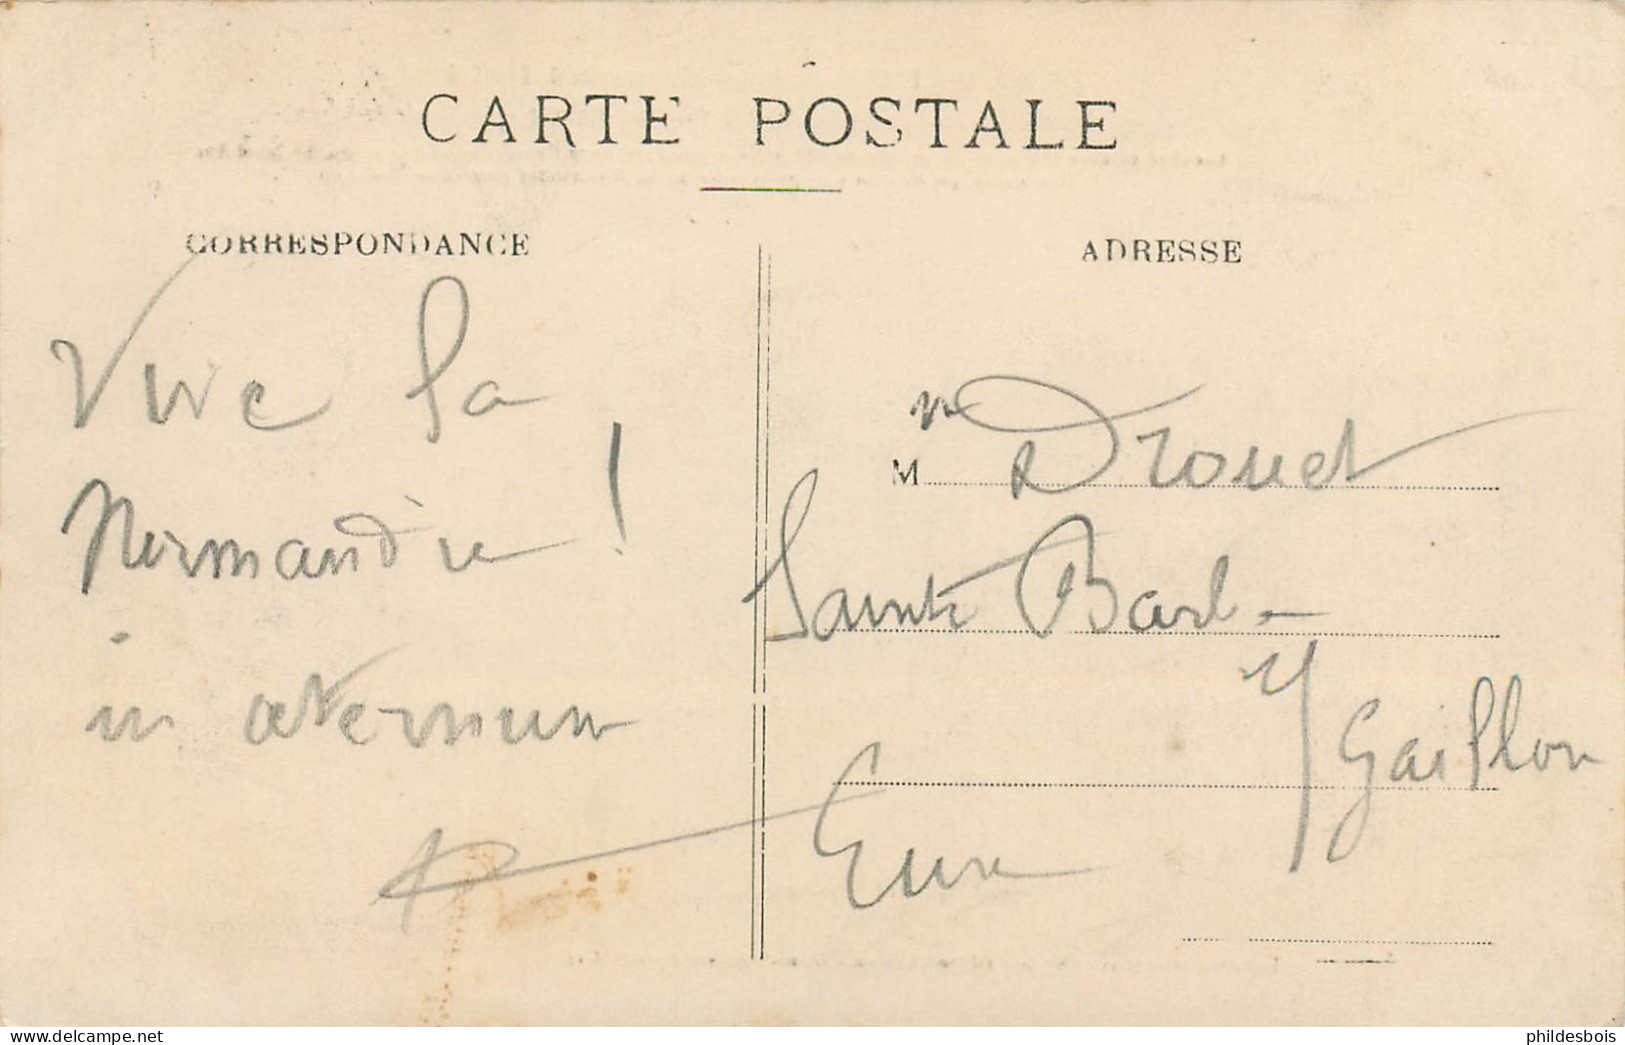 CARTE POSTALE
CORRESPONDANCE
ADRESSE
Vive la
Normandie !
in æternum
M Drouet
Sainte Barbe
s/ Gaillon
Eure
phildesbois